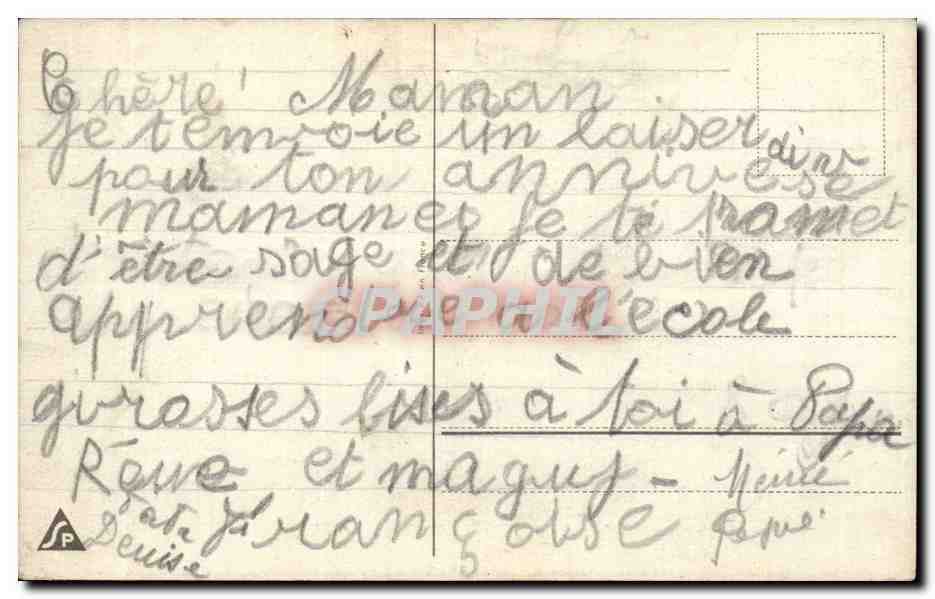 Chère Maman
je t'envoie un baiser
pour ton anniverse
maman et je te pramet
d'être sage et de bien
apprendre a l'école
grosses bises à toi à Papa
et maguy - Mémé
Françoise Pépé
Denise
CPAPHIL
SP